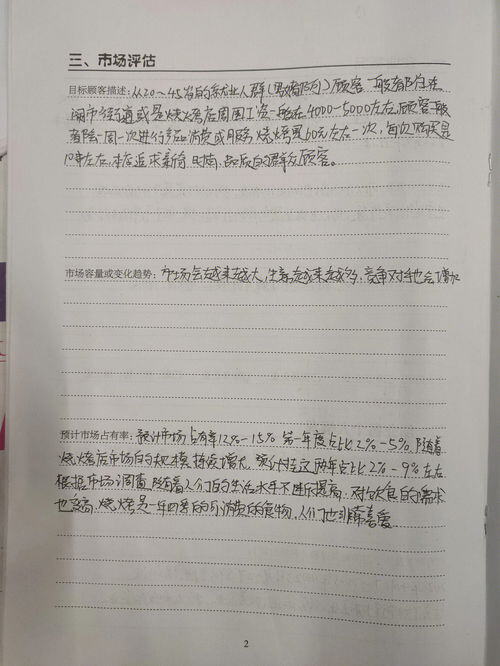 三、市场评估
目标顾客描述：从20～45岁的就业人群（男女都可）顾客一般都住在
闹市街道或是烧烤店周围工资一般在4000-5000左右，顾客一般
会隔一周一次进行消费或服务，烧烤量60元左右一次，每次购买是
左右，本店追求新奇、时尚、品质的群众顾客。
市场容量或变化趋势：市场会越来越大，生意越来越多，竞争对手也会增加
预计市场占有率：预计市场占有率12%-15% 第一年度占比2%-5% 随着
烧烤店市场的规模持续增大，预计在这两年占比2%-9%左右
根据市场调查，随着人们的生活水平不断提高，对饮食的需求
也变高，烧烤是一年四季的可消费的食物，人们也非常喜爱
2